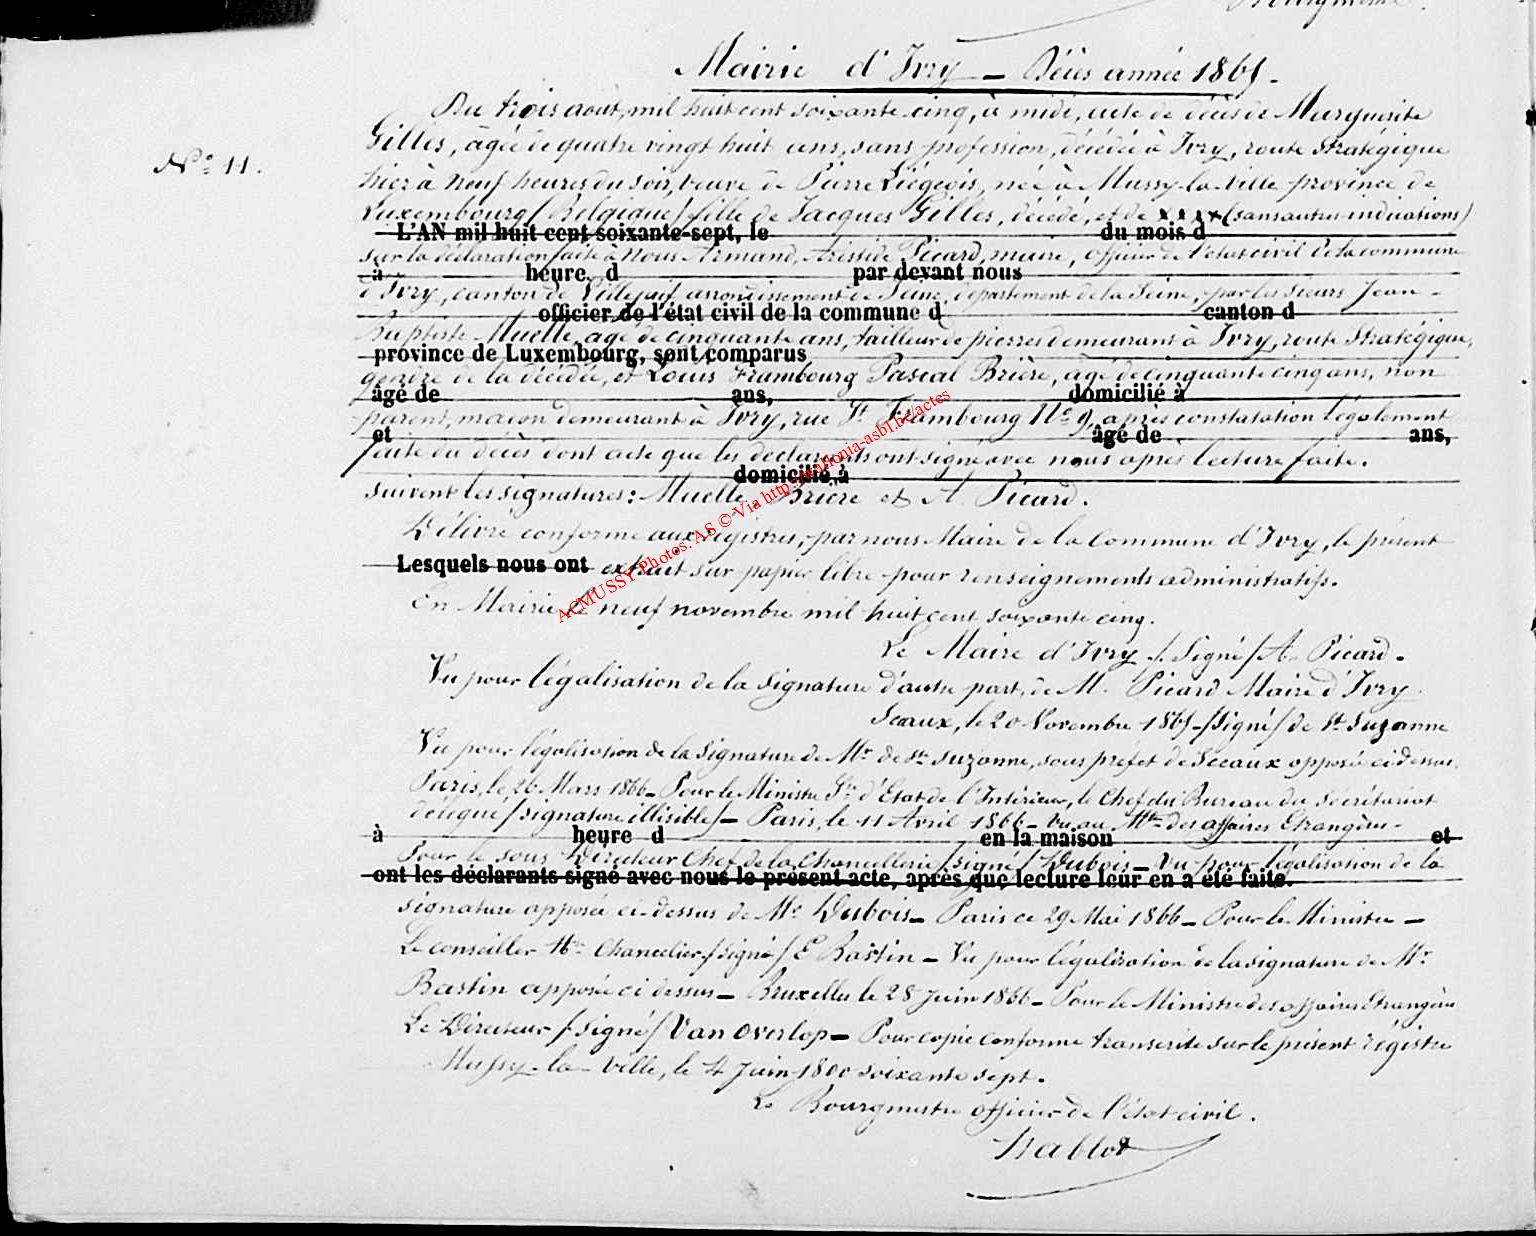 Mairie d'Ivry — Décès année 1865.
Du trois aout, mil huit cent soixante cinq, à midi, acte de décès de Marguerite
N° 11.
Gilles, âgée de quatre vingt huit ans, sans profession, décédée à Ivry, route stratégique
hier à neuf heures du soir, veuve de Pierre Liégeois, née à Mussy-la-Ville province de
Luxembourg (Belgique) fille de Jacques Gilles, décédé, et de xxxx (sans autres indications)
L'AN mil huit cent soixante-sept, le du mois d
sur la déclaration faite à nous Armand, Aristide Picard, maire, officier de l'état civil de la commune
à heure d par devant nous
d'Ivry, canton de Villejuif arrondissement de Seine, département de la Seine, par les sieurs Jean-
officier de l'état civil de la commune d canton d
Baptiste Muelle, âgé de cinquante ans, tailleur de pierres demeurant à Ivry, route stratégique,
province de Luxembourg, sont comparus
gendre de la décédée, et Louis Frambourg Pascal Brière, âgé de cinquante cinq ans, non
âgé de ans, domicilié à
parent, maçon demeurant à Ivry, rue St Frambourg N° 9, après constatation légalement
et âgé de ans,
faite du décès dont acte que les déclarants ont signé avec nous après lecture faite.
domicilié à
suivent les signatures: Muelle, Brière et A. Picard.
Délivré conforme aux régistres, par nous Maire de la commune d'Ivry, le présent
Lesquels nous ont extrait sur papier libre pour renseignements administratifs.
En Mairie le neuf novembre mil huit cent soixante cinq.
Le Maire d'Ivry /. Signé / A. Picard.
Vu pour légalisation de la signature d'autre part, de M. Picard Maire d'Ivry.
Sceaux, le 20 Novembre 1865 /signé/ de Ste Suzanne
Vu pour légalisation de la signature de Mr de Ste Suzanne, sous préfet de Sceaux apposée ci dessus.
Paris, le 26 Mars 1866 — Pour le Ministre Sre d'Etat de l'Intérieur, le Chef du Bureau du Secrétariat
délégué /signature illisible/ — Paris, le 11 Avril 1866 — vu au Mtre des affaires Etrangères —
à heure d en la maison et
Pour le sous Directeur Chef de la Chancellerie /signé/ Dubois — Vu pour légalisation de la
ont les déclarants signé avec nous le présent acte, après que lecture leur en a été faite.
signature apposée ci-dessus de Mr Dubois — Paris ce 29 Mai 1866 — Pour le Ministre —
Le conseiller Chancelier /signé/ E Bastin — Vu pour légalisation de la signature de Mr
Bastin apposée ci dessus — Bruxelles le 28 Juin 1866 — Pour le Ministre des affaires Etrangères
Le Directeur /signé/ Van Overlop — Pour copie conforme transcrite sur le présent régistre
Mussy-la-Ville, le 4 Juin 1800 soixante sept.
Le Bourgmestre officier de l'état civil.
ACMUSSY Photos: AS © Via http://wallonia-asbl.be/actes